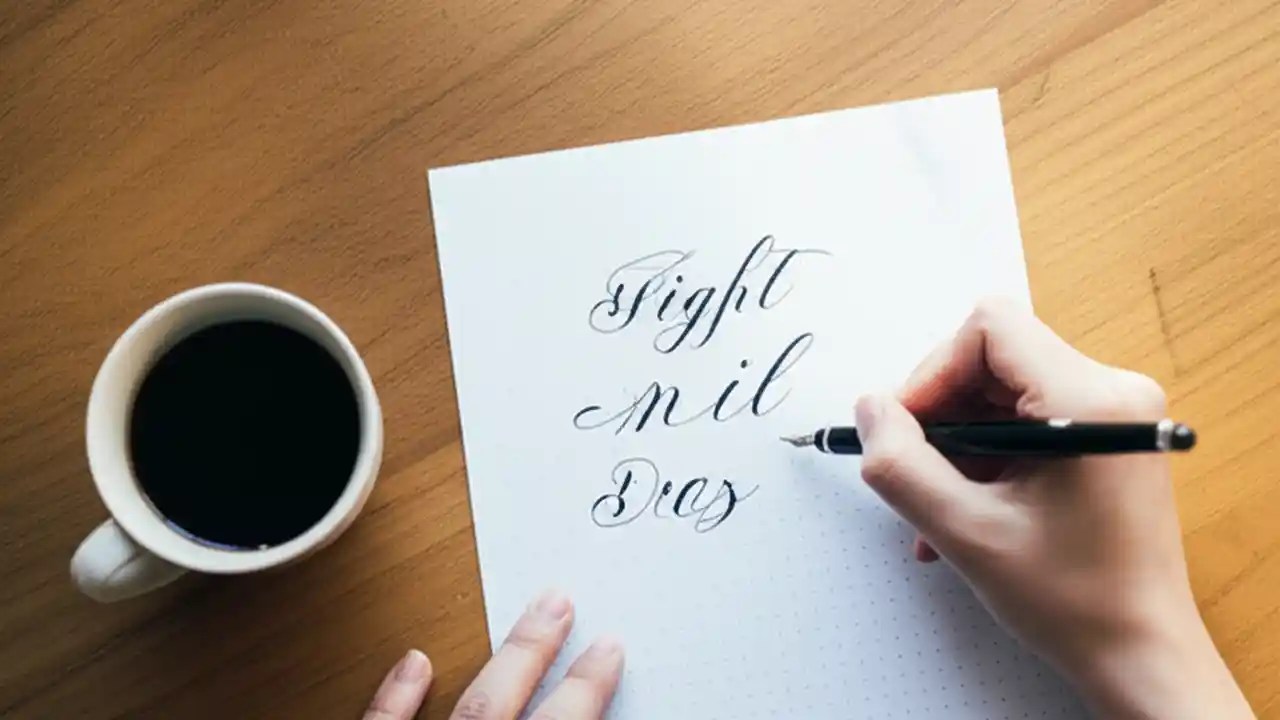 Fight
nil
Dcas